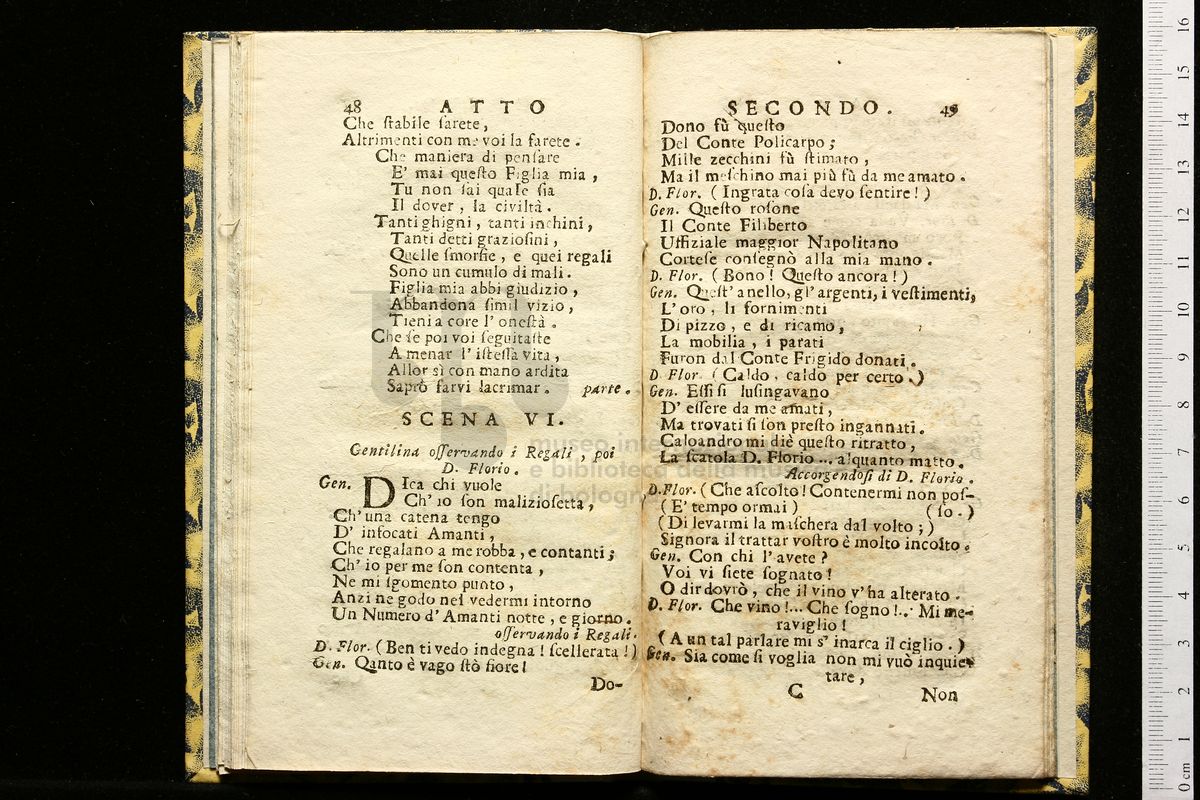 48 ATTO
Che ſtabile ſarete,
Altrimenti con me voi la farete.
Che maniera di penſare
E' mai queſto Figlia mia,
Tu non ſai quale ſia
Il dover, la civiltà.
Tanti ghigni, tanti inchini,
Tanti detti grazioſini,
Quelle ſmorfie, e quei regali
Sono un cumulo di mali.
Figlia mia abbi giudizio,
Abbandona ſimil vizio,
Tieni a core l' oneſtà.
Che ſe poi voi ſeguitaſte
A menar l' iſteſſa vita,
Allor sì con mano ardita
Saprò farvi lacrimar. parte.
SCENA VI.
Gentilina oſſervando i Regali, poi
D. Florio.
Gen. DIca chi vuole
Ch' io ſon malizioſetta,
Ch' una catena tengo
D' infocati Amanti,
Che regalano a me robba, e contanti;
Ch' io per me ſon contenta,
Ne mi ſgomento punto,
Anzi ne godo nel vedermi intorno
Un Numero d' Amanti notte, e giorno.
oſſervando i Regali.
D. Flor. (Ben ti vedo indegna! ſcellerata!)
Gen. Qanto è vago ſtò fiore!
Do-
SECONDO. 49
Dono fù queſto
Del Conte Policarpo;
Mille zecchini fù ſtimato,
Ma il meſchino mai più fù da me amato.
D. Flor. (Ingrata coſa devo ſentire!)
Gen. Queſto roſone
Il Conte Filiberto
Uffiziale maggior Napolitano
Corteſe conſegnò alla mia mano.
D. Flor. (Bono! Queſto ancora!)
Gen. Queſt' anello, gl' argenti, i veſtimenti,
L' oro, li fornimenti
Di pizzo, e di ricamo,
La mobilia, i parati
Furon dal Conte Frigido donati.
D. Flor. (Caldo, caldo per certo.)
Gen. Eſſi ſi luſingavano
D' eſſere da me amati,
Ma trovati ſi ſon preſto ingannati.
Caloandro mi diè queſto ritratto,
La ſcatola D. Florio ... alquanto matto.
Accorgendoſi di D. Florio.
D. Flor. (Che aſcolto! Contenermi non poſ-
(E' tempo ormai) (ſo.)
(Di levarmi la maſchera dal volto;)
Signora il trattar voſtro è molto incolto.
Gen. Con chi l' avete?
Voi vi ſiete ſognato!
O dir dovrò, che il vino v' ha alterato.
D. Flor. Che vino!... Che ſogno!... Mi me-
raviglio!
(A un tal parlare mi s' inarca il ciglio.)
Gen. Sia come ſi voglia non mi vuò inquie-
tare,
C Non